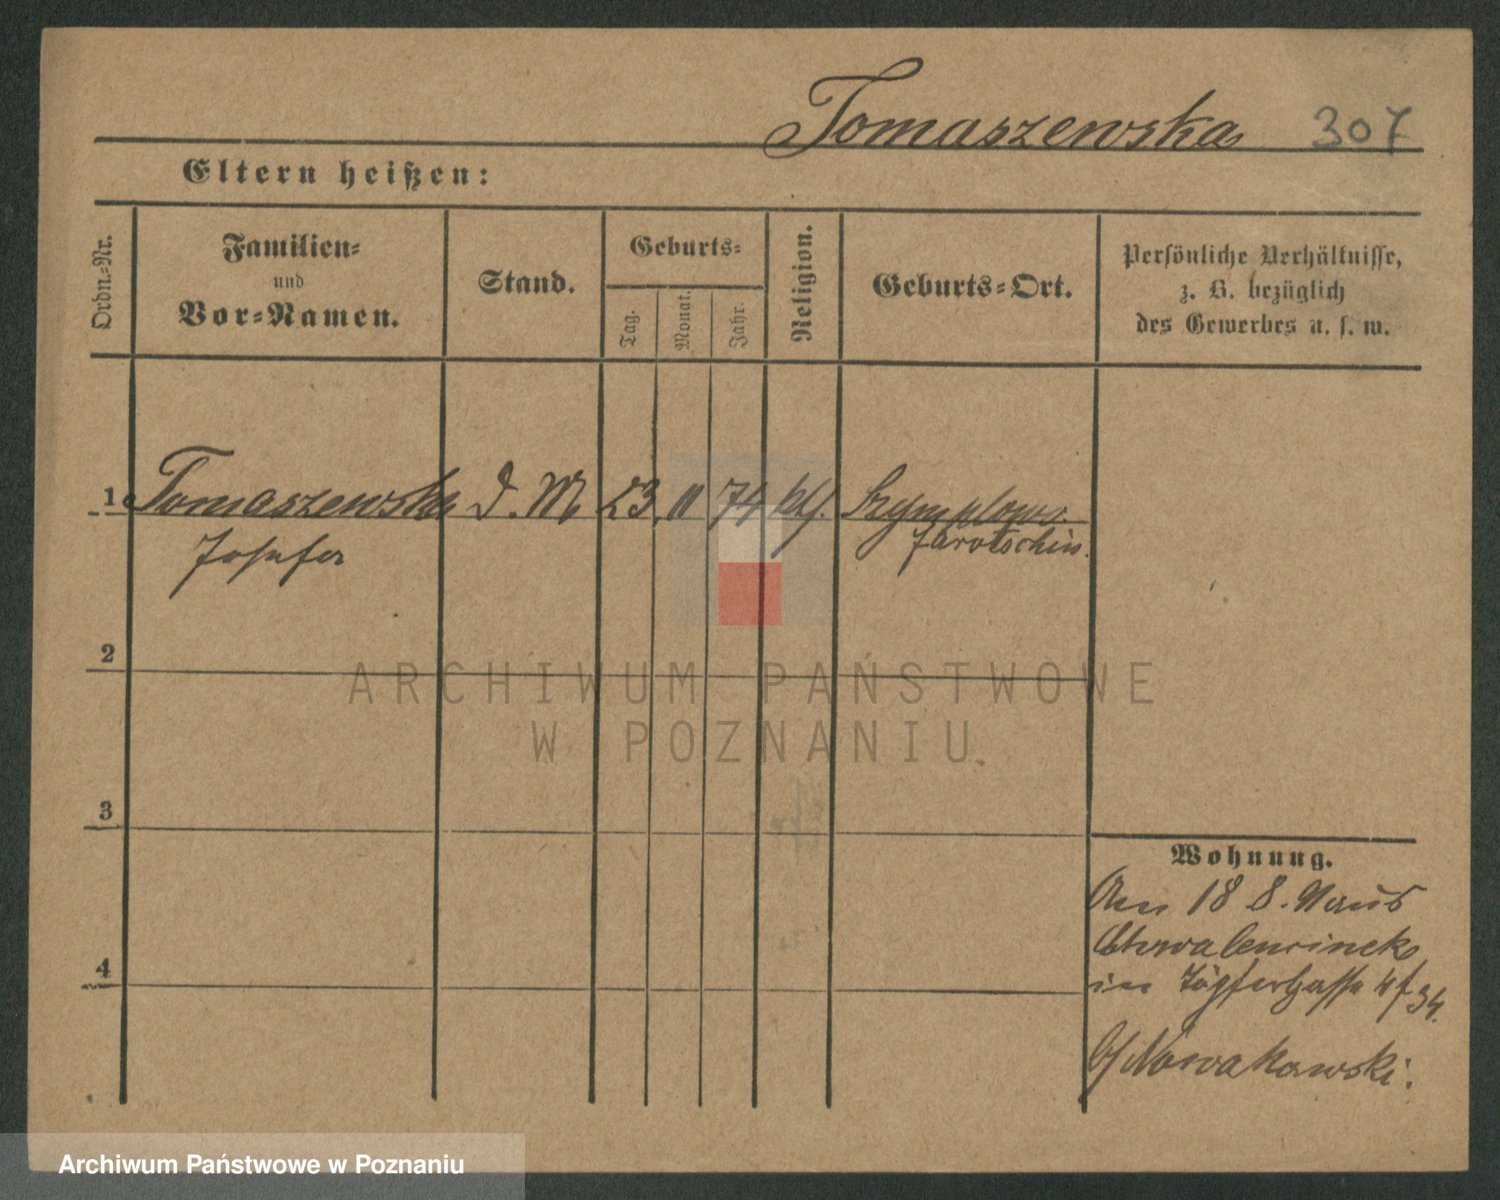 Tomaszewska 307
Eltern heißen:
Ordn.-Nr.
Familien-
und
Vor-Namen.
Stand.
Geburts-
Tag.
Monat.
Jahr.
Religion.
Geburts-Ort.
Persönliche Verhältnisse,
z. B. bezüglich
des Gewerbes u. s. w.
1 Tomaszewska D. M 23. 11 74 kth.
Josefa
Jarotschin.
2
ARCHIWUM PAŃSTWOWE
W POZNANIU
3
Wohnung.
18 8. aus
4
34.
Nowakowski.
Archiwum Państwowe w Poznaniu